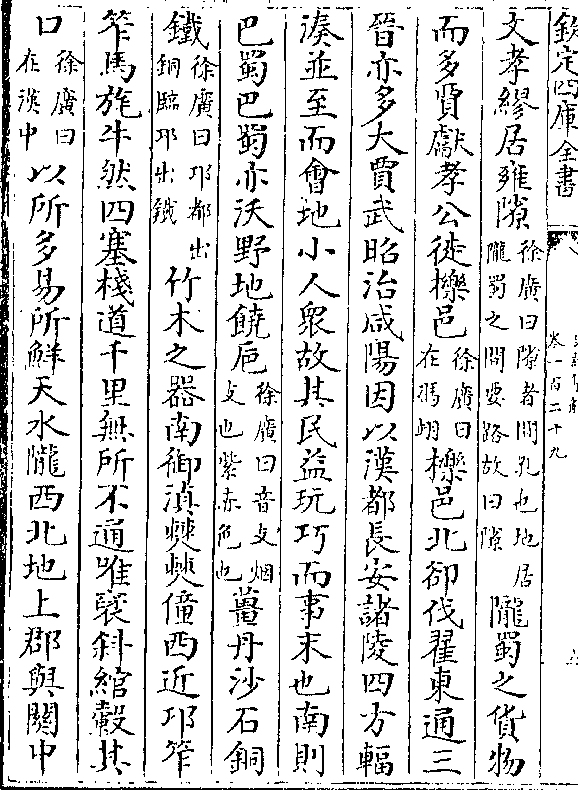 欽定四庫全書
卷一百二十九
文孝繆居雍隙徐廣曰隙者間孔也地居隴蜀之間要路故曰隙隴蜀之貨物
而多賈獻孝公徙櫟邑徐廣曰在馮翊櫟邑北卻伐翟東通三
晉亦多大賈武昭治咸陽因以漢都長安諸陵四方輻
湊並至而會地小人衆故其民益玩巧而事末也南則
巴蜀巴蜀亦沃野地饒巵徐廣曰音支烟支也紫赤色也薑丹沙石銅
鐵徐廣曰邛都出銅臨邛出鐵竹木之器南御滇僰僰僮西近邛笮
笮馬旄牛然四塞棧道千里無所不通唯襃斜綰轂其
口徐廣曰在漢中以所多易所鮮天水隴西北地上郡與關中